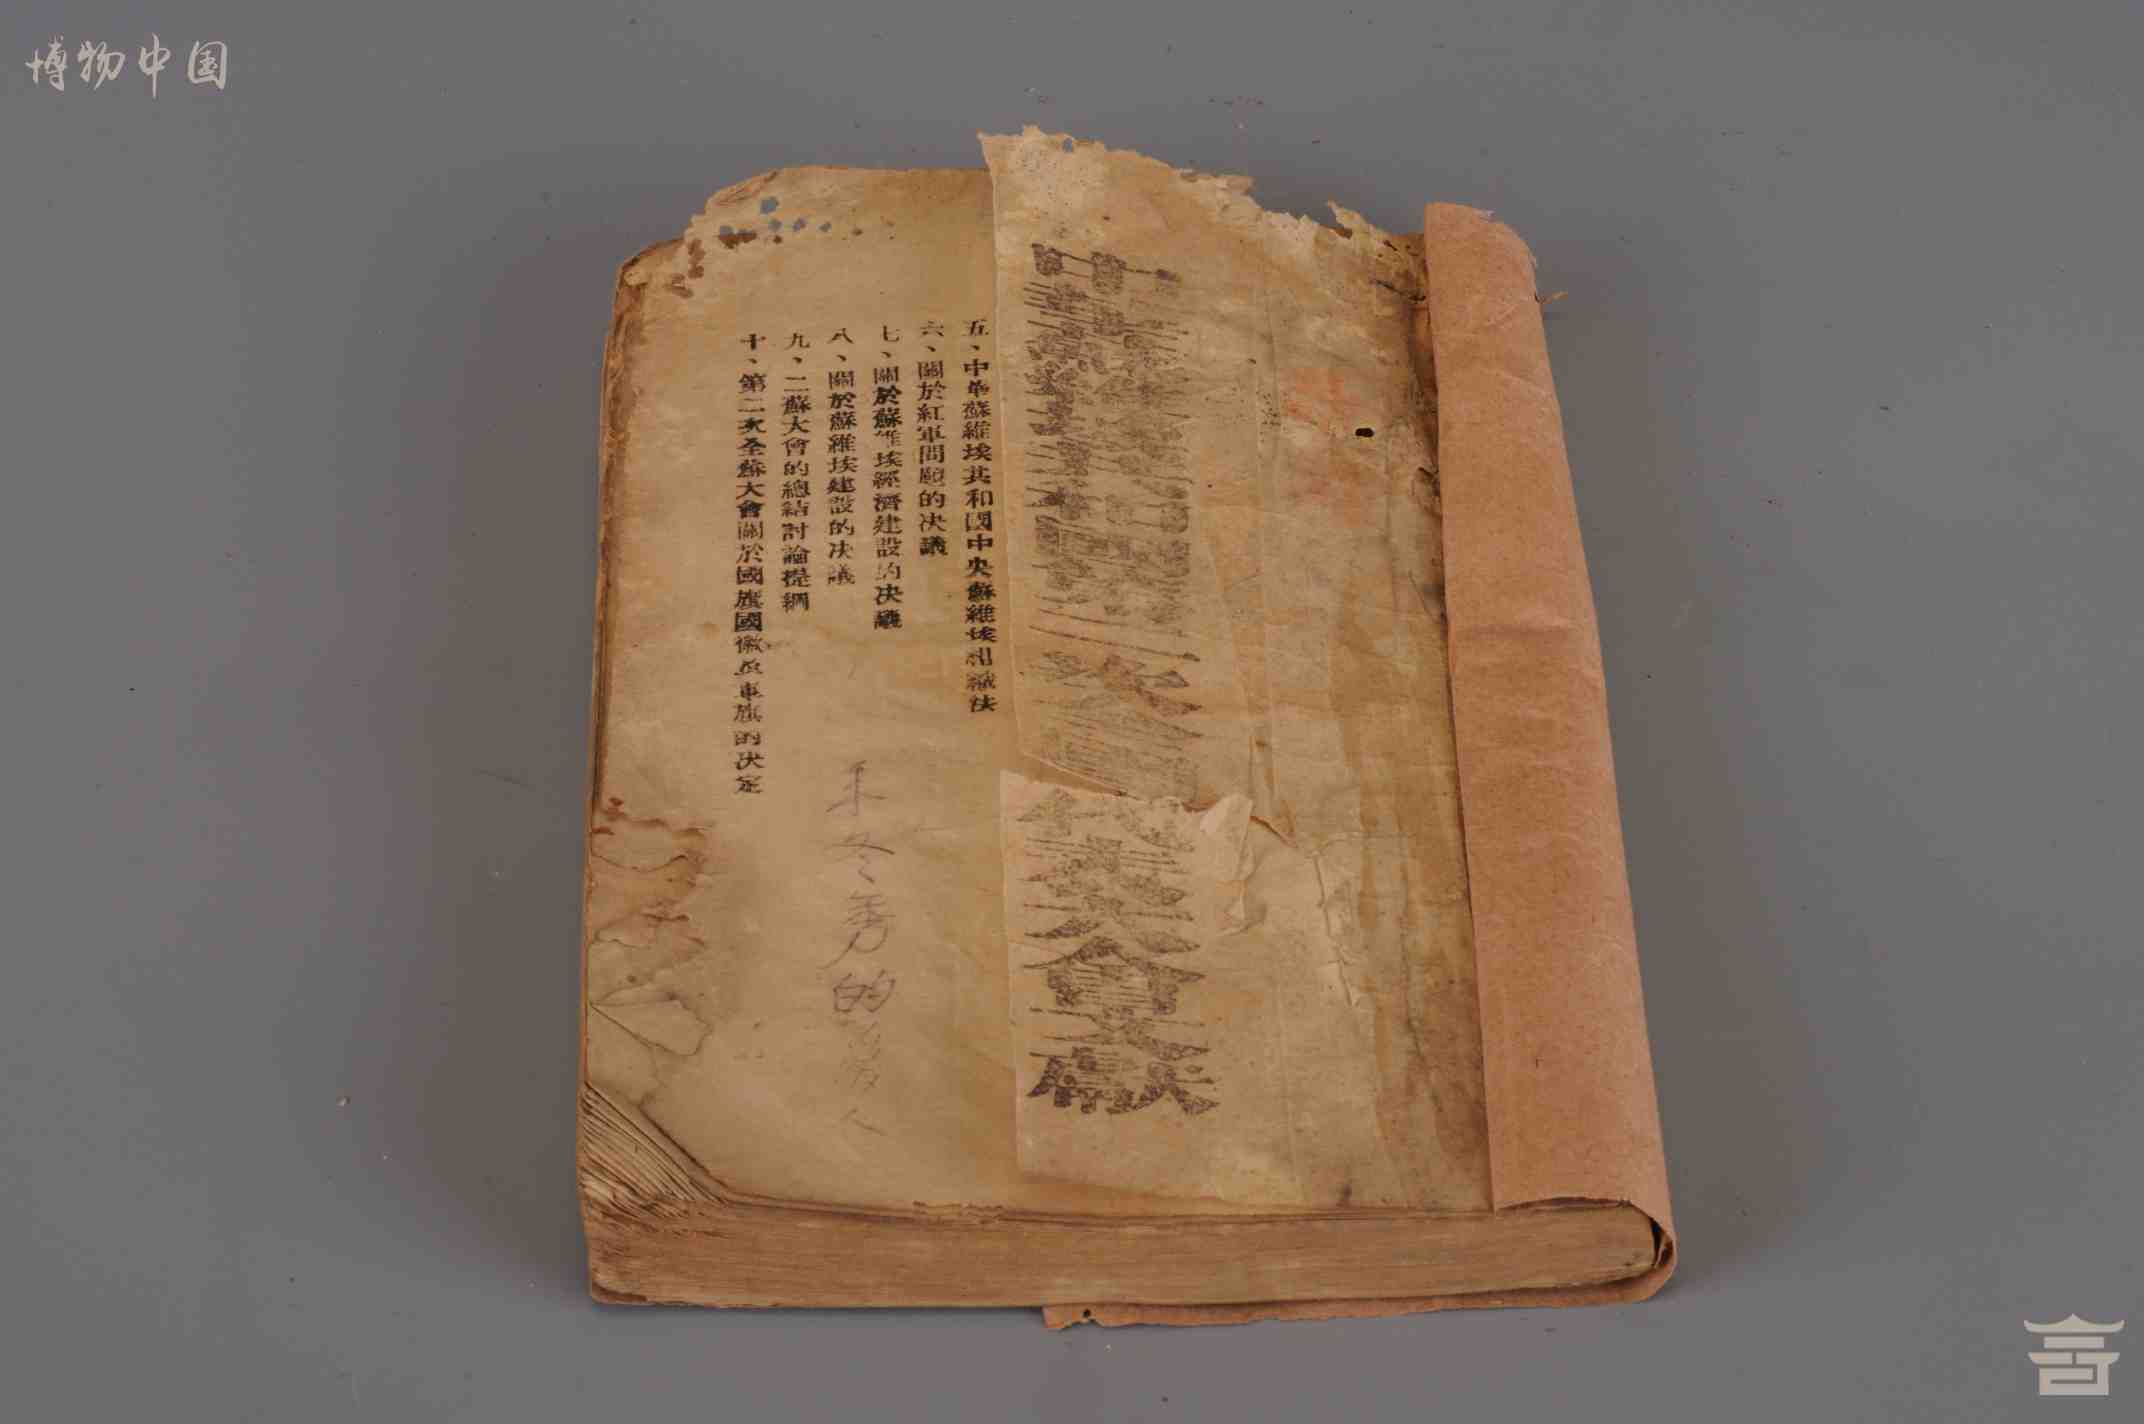 博物中国
中華蘇維埃共和國第二次全國代表大會文献
五、中華蘇維埃共和國中央蘇維埃組織法
六、關於紅軍問題的决議
七、關於蘇維埃經濟建設的决議
八、關於蘇維埃建設的决議
九、二蘇大會的總結討論提綱
十、第二次全蘇大會關於國旗國徽及軍旗的决定
王冬秀的愛人